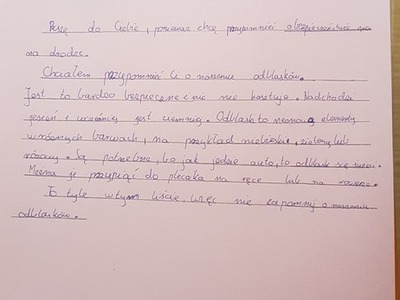 Piszę do Ciebie, ponieważ chcę przypomnieć o bezpieczeństwie
na drodze.
Chciałem przypomnieć Ci o noszeniu odblasków.
Jest to bardzo bezpieczne i nic nie kosztuje. Nadchodzi
jesień i wcześniej jest ciemniej. Odblask to neonowa elementy
w różnych barwach, na przykład niebieski, zielony lub
różowy. Są potrzebne, bo jak jedzie auto, to odblask się świeci.
Można je przypiąć do plecaka na ręce lub na rowerze.
To tyle w tym liście, więc nie zapomnij o noszeniu
odblasków.